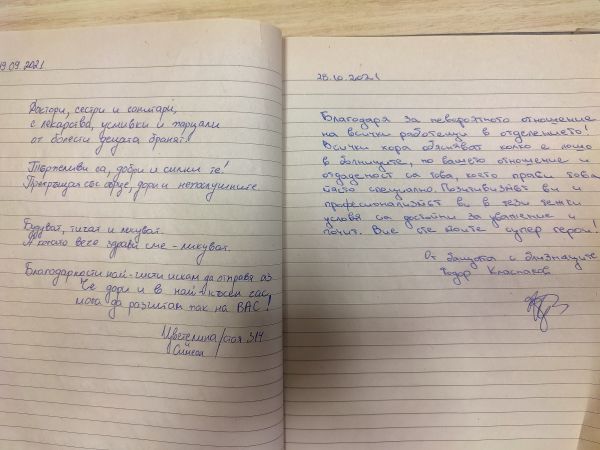 19.09.2021
Доктори, сестри и санитари,
с лекарства, усмивки и парцали
от болести децата бранят!
Търпеливи са, добри и силни те!
Прегръщал със сърце, дори и непослушните.
Будуват, тичат и лекуват.
А когато вече здрави сме - ликуват.
Благодарности най-чисти искам да отправя аз
Че дори и в най-късен час,
мога да разчитам пак на ВАС!
Цветелина/стая 314
Симеон
28.10.2021
Благодаря за невероятното отношение
на всички работещи в отделението!
Всички хора обясняват колко е лошо
в болниците, но вашето отношение и
отдаденост са това, което прави това
място специално. Позитивизмът ви и
професионализмът ви в тези тежки
условя са достойни за уважение и
почит. Вие сте моите супер герои!
От бащата с близнаците
Тодор